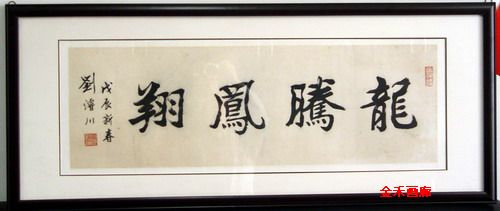 龍騰鳳翔
戊辰新春
劉濬川
金禾畫廊